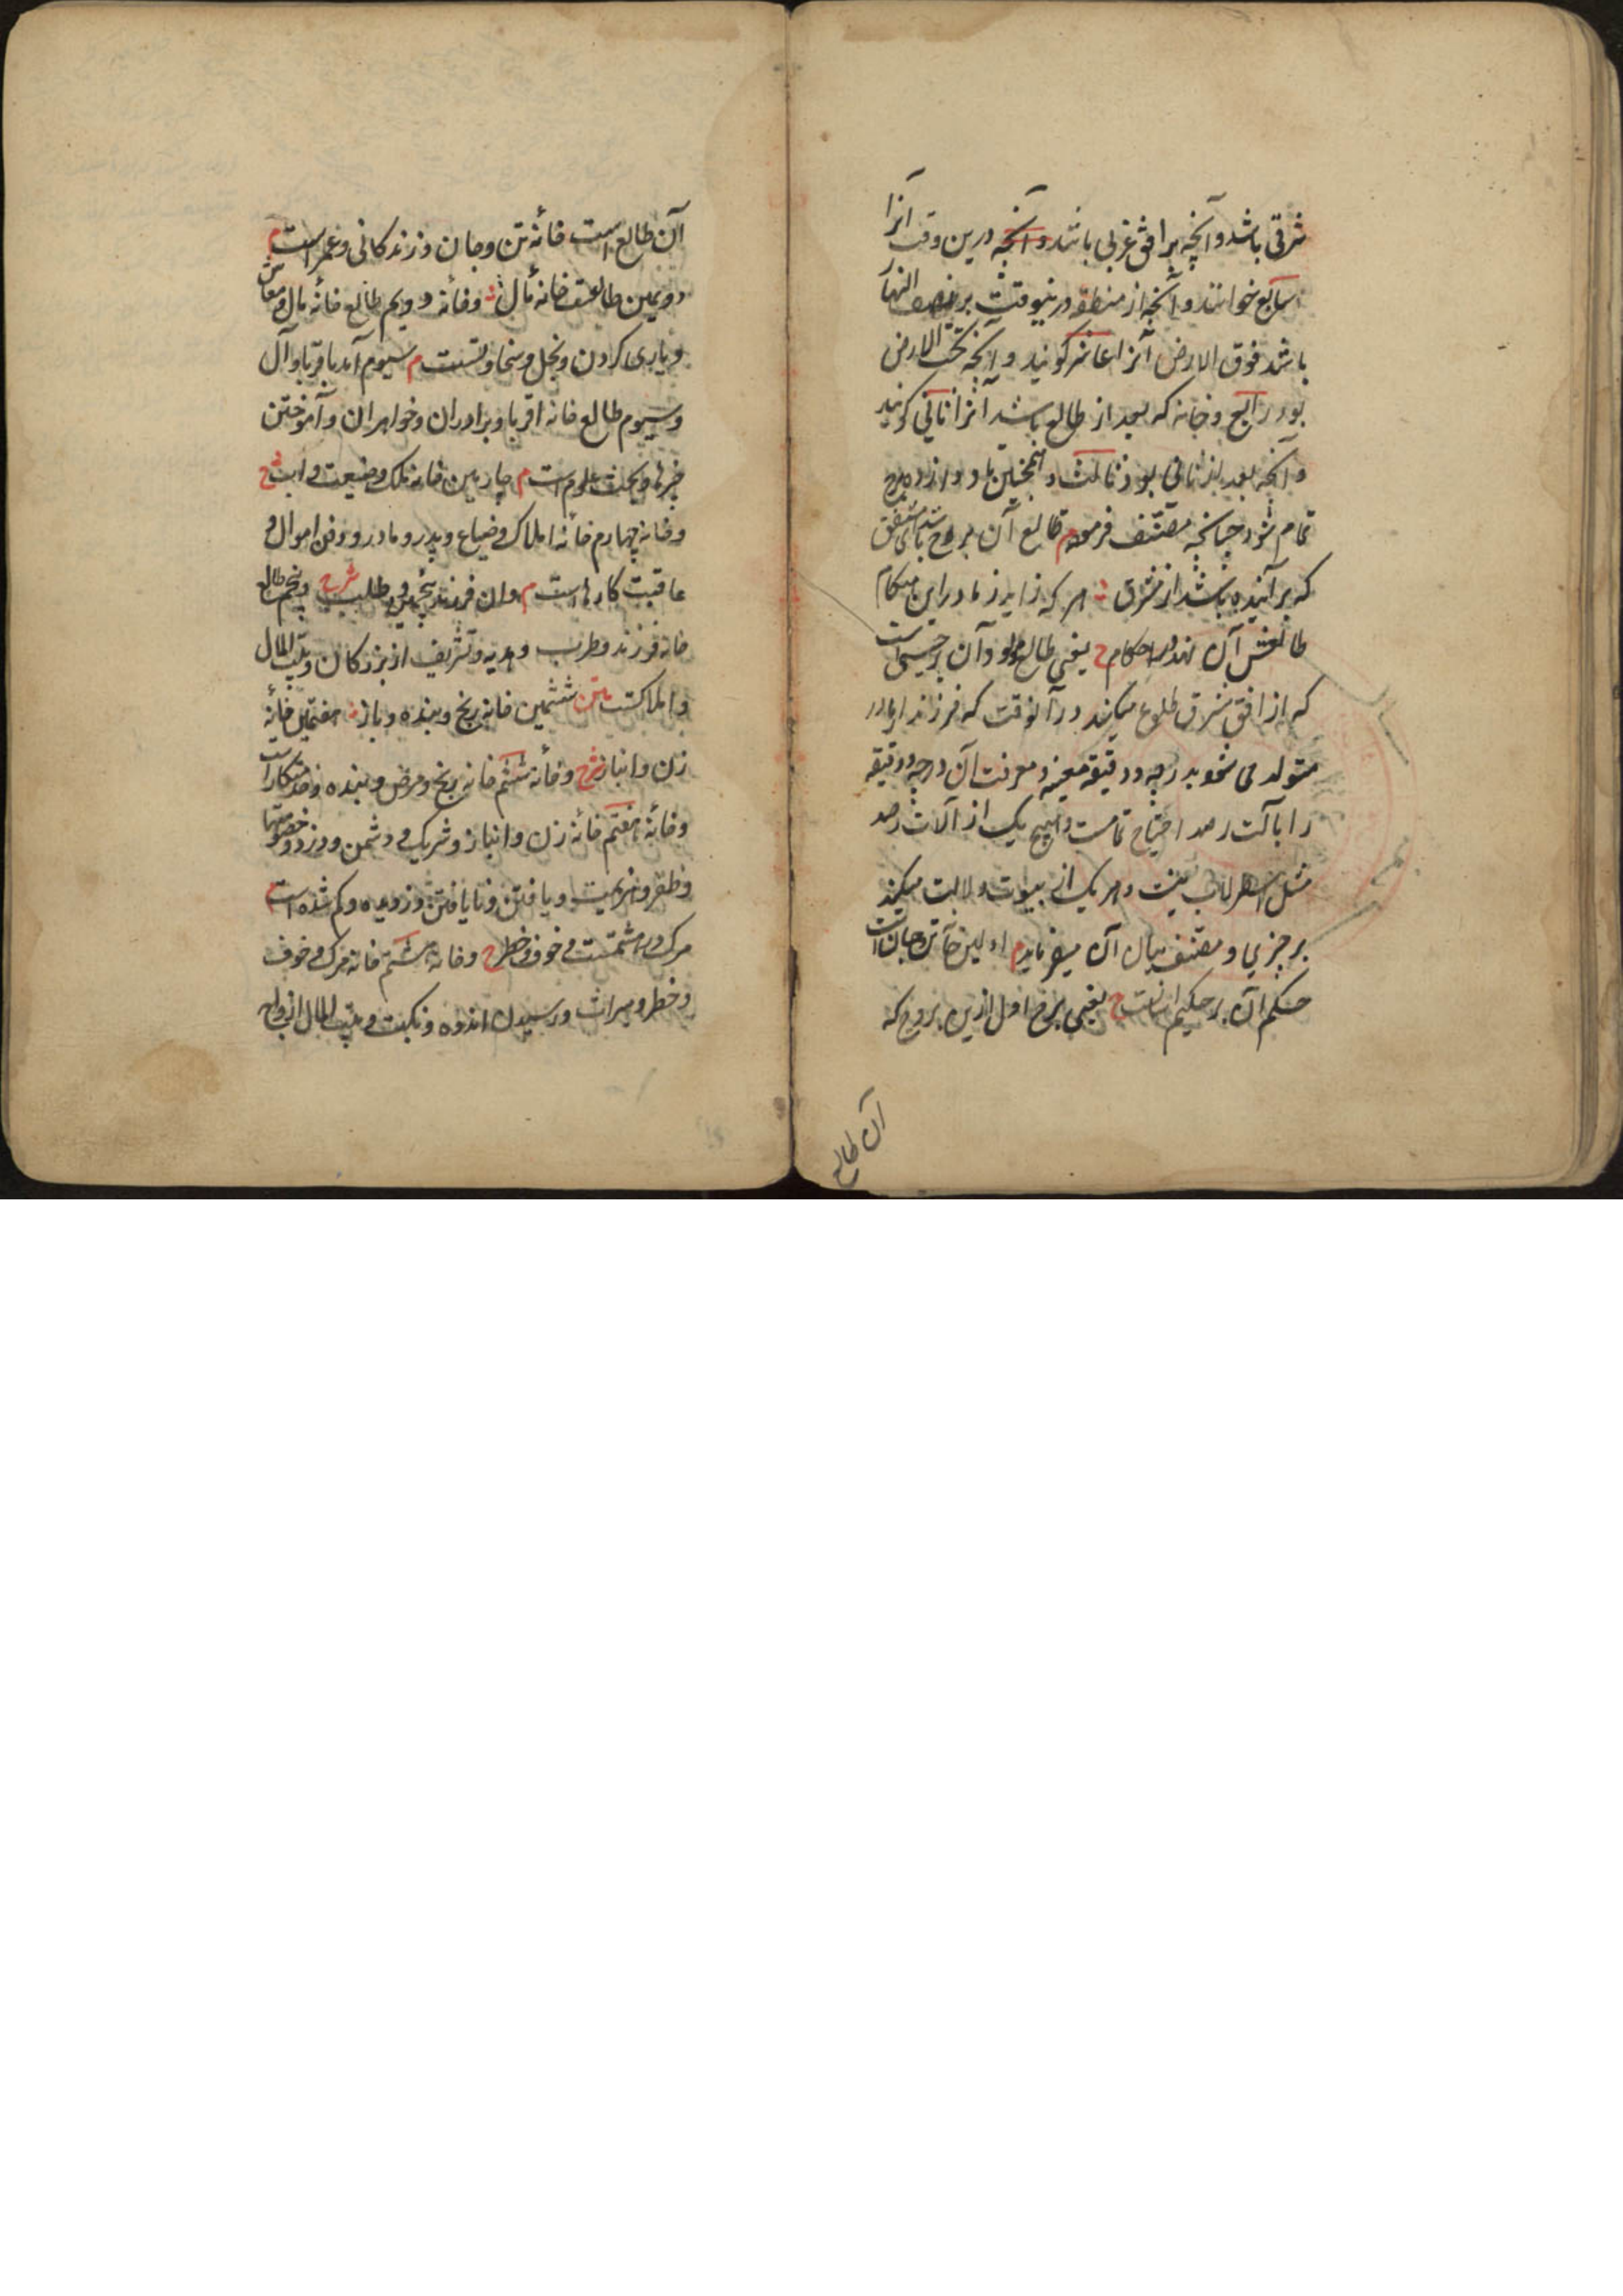 شرقی باشد و آنچه بر افق غربی باشد و آنچه درین وقت آنرا
سابع خوانند و آنچه از منطقه درینوقت بر نصف النهار
باشد فوق الارض آنرا عاشر گویند و آنچه تحت الارض
بود رابع و خانه که بعد از طالع باشد آنرا ثانی گویند
و آنچه بعد از ثانی بود ثالث و همچنین تا دوازده برج
تمام شود چنانچه مصنف فرموده م طالع آن برج باشد
که برآینده باشد از مشرق هر که زاید ز مادر این هنگام
طالعش آن نهند در احکام ح یعنی طالع مولود آن برجیست
که از افق شرق طلوع میکند در آنوقت که فرزند از مادر
متولد می شود بدرجه و دقیقه معینه و معرفت آن درجه و دقیقه
را بآلت رصد احتیاج تمامست و هیچ یک از آلات رصد
مثل اسطرلاب نیست و هر یک از بیوت دلالت میکند
بر چیزی و مصنف بیان آن میفرماید م اولین خانه تن و جانست
حکم آن بر حکیم آسانست ح یعنی برج اول ازین بروج که
آن طالع
آن طالع است خانه تن و جان و زندگانی و عمر است م
دویمین طالعست خانه مال ش و خانه دویم طالع خانه مال و معاش
و یاری کردن و بخل و سخاوتست م سیوم آمد باقربا و آل
و سیوم طالع خانه اقربا و برادران و خواهران و آموختن
خبرها و بحث علوم است م چارمین خانه ملک و ضیعت و اب شح
و خانه چهارم خانه املاک و ضیاع و پدر و مادر و دفن اموال و
عاقبت کارها است م وان فرزند پنجمین و طلب شرح و پنجم طالع
خانه فرزند و طرب و هدیه و تشریف از بزرگان و بیت المال
و املاکست متن ششمین خانه رنج و بنده و باز هفتمین خانه
زن و انباز شرح و خانه ششم خانه رنج و مرض و بنده و خدمتکارانست
و خانه هفتم خانه زن و انباز و شریک و دشمن و دزد و خصومتها
و ظفر و هزیمت و یافتن و نایافتن دزدیده و گم شده است م
مرگ در هشتمست و خوف و خطر ح و خانه هشتم خانه مرگ و خوف
و خطر و میراث و رسیدن اندوه و نکبت و بیت المال ازواج